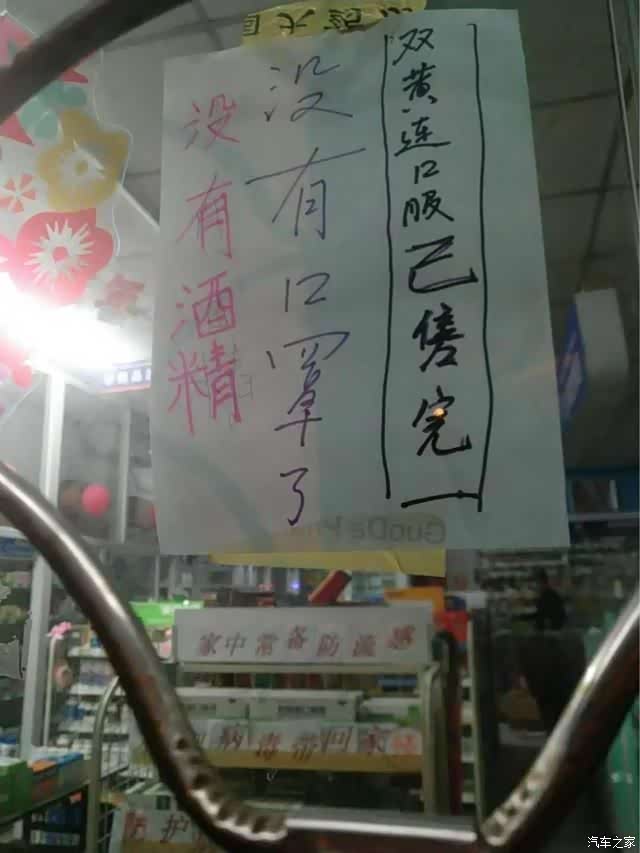 双黄连口服已售完
没有口罩了
没有酒精
GuoDa
家中常备防流感
病毒带回家
防护
汽车之家